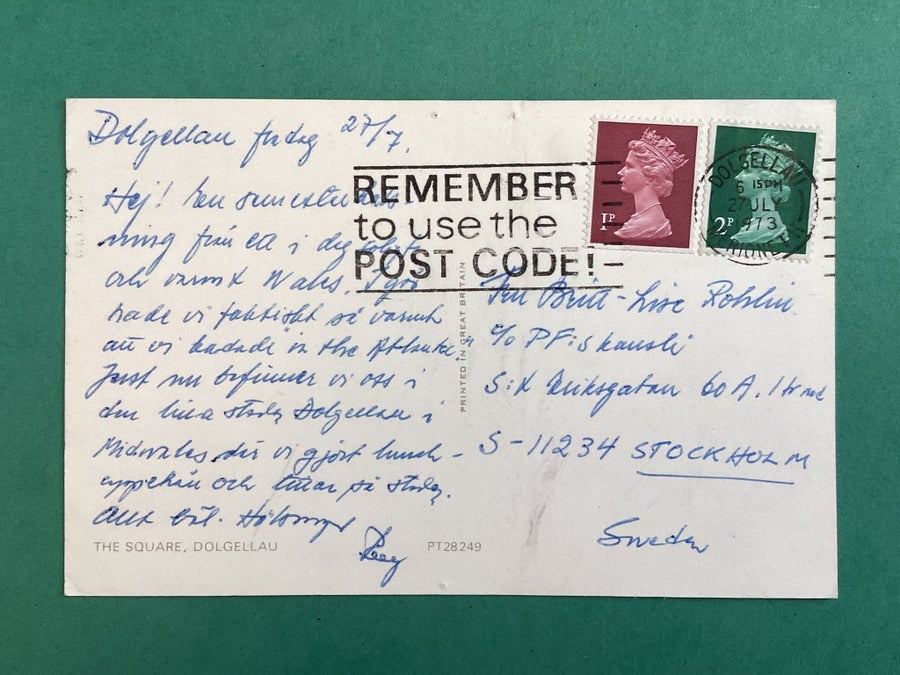 Dolgellau fredag 27/7.
Hej! En
ning från ett i
och varmt Wales. Igår
hade vi faktiskt så varmt
att vi badade in the Atlantic".
Just nu befinner vi oss i
den lilla staden Dolgellau i
Midwales där vi gjort lunch-
uppehåll och tittar på staden.
Allt väl. Hälsningar
THE SQUARE, DOLGELLAU
PT28249
PRINTED IN GREAT BRITAIN
REMEMBER
to use the
POST CODE!
1P
2P
DOLGELLAU
6 15PM
27 JLY
1973
Britt-Lise Rohlin
c/o PFiskanski
S:t Eriksgatan 60 A. 1tr
S-11234 STOCKHOLM
Sweden